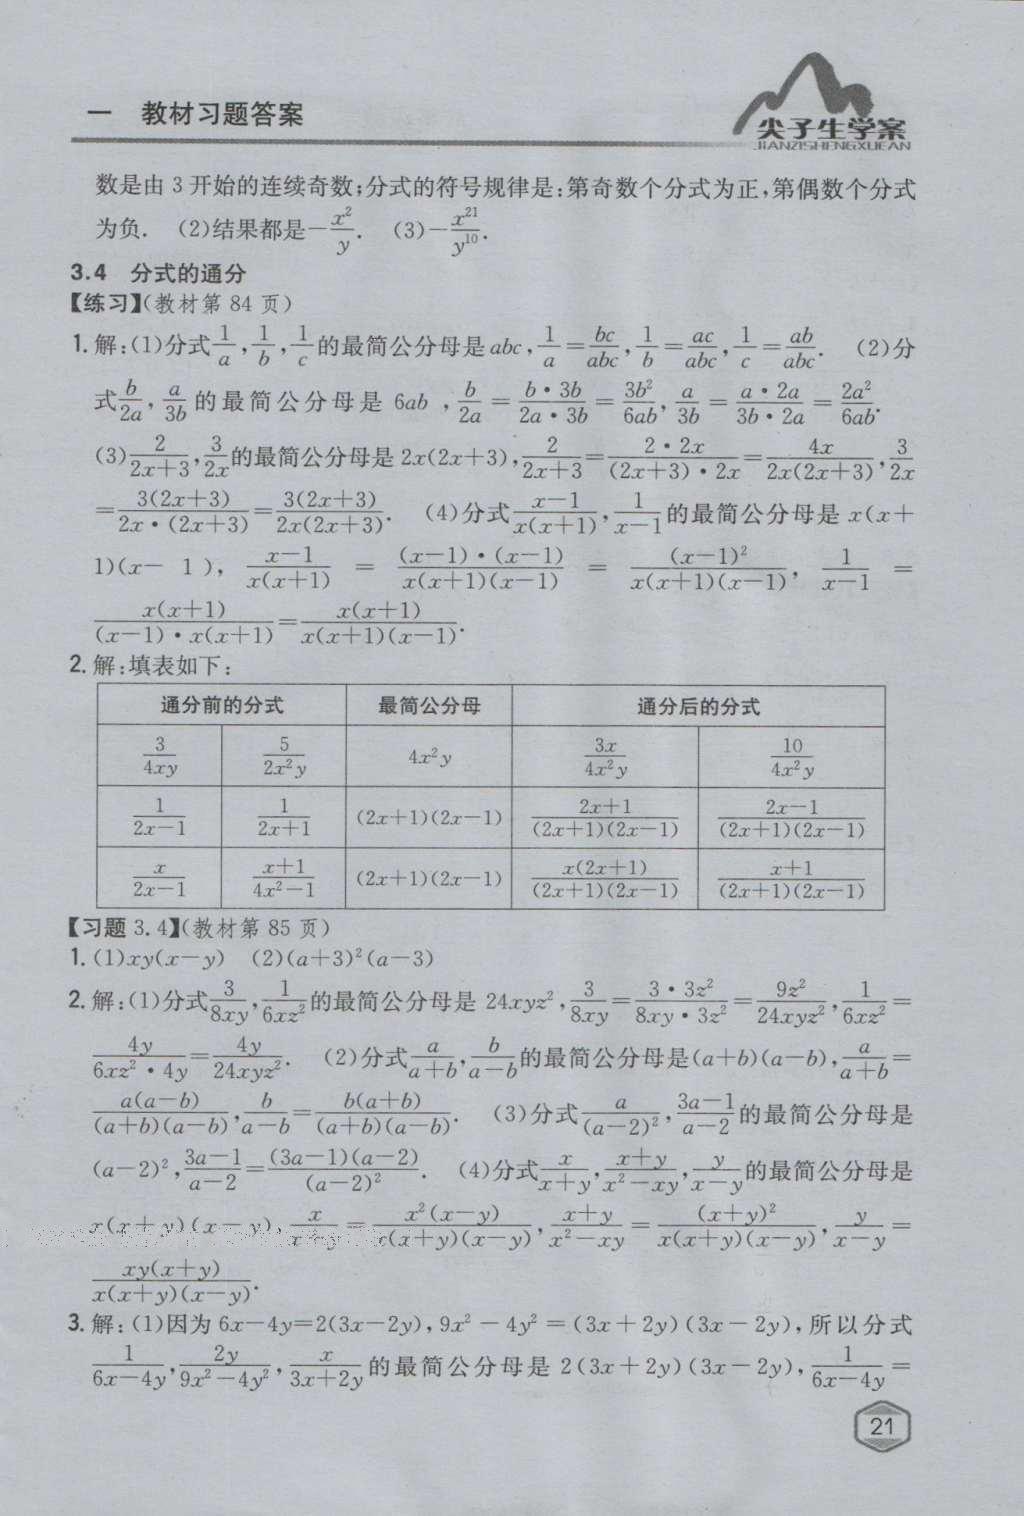 一 教材习题答案
尖子生学案
JIANZISHENGXUEAN
数是由 3 开始的连续奇数;分式的符号规律是:第奇数个分式为正,第偶数个分式
为负. (2)结果都是$-\frac{x^2}{y}$. (3)$-\frac{x^{21}}{y^{10}}$.
3.4 分式的通分
【练习】(教材第 84 页)
1. 解:(1)分式$\frac{1}{a},\frac{1}{b},\frac{1}{c}$的最简公分母是 abc,$\frac{1}{a}=\frac{bc}{abc},\frac{1}{b}=\frac{ac}{abc},\frac{1}{c}=\frac{ab}{abc}$. (2)分
式$\frac{b}{2a},\frac{a}{3b}$的最简公分母是 6ab ,$\frac{b}{2a}=\frac{b·3b}{2a·3b}=\frac{3b^2}{6ab},\frac{a}{3b}=\frac{a·2a}{3b·2a}=\frac{2a^2}{6ab}$.
(3)$\frac{2}{2x+3},\frac{3}{2x}$的最简公分母是 2x(2x+3),$\frac{2}{2x+3}=\frac{2·2x}{(2x+3)·2x}=\frac{4x}{2x(2x+3)},\frac{3}{2x}$
$=\frac{3(2x+3)}{2x·(2x+3)}=\frac{3(2x+3)}{2x(2x+3)}$. (4)分式$\frac{x-1}{x(x+1)},\frac{1}{x-1}$的最简公分母是 x(x+
1)(x- 1 ),$\frac{x-1}{x(x+1)}=\frac{(x-1)·(x-1)}{x(x+1)(x-1)}=\frac{(x-1)^2}{x(x+1)(x-1)},\frac{1}{x-1}=$
$\frac{x(x+1)}{(x-1)·x(x+1)}=\frac{x(x+1)}{x(x+1)(x-1)}$.
2. 解:填表如下:
通分前的分式 最简公分母 通分后的分式
$\frac{3}{4xy}$ $\frac{5}{2x^2y}$ $4x^2y$ $\frac{3x}{4x^2y}$ $\frac{10}{4x^2y}$
$\frac{1}{2x-1}$ $\frac{1}{2x+1}$ (2x+1)(2x-1) $\frac{2x+1}{(2x+1)(2x-1)}$ $\frac{2x-1}{(2x+1)(2x-1)}$
$\frac{x}{2x-1}$ $\frac{x+1}{4x^2-1}$ (2x+1)(2x-1) $\frac{x(2x+1)}{(2x+1)(2x-1)}$ $\frac{x+1}{(2x+1)(2x-1)}$
【习题 3.4】(教材第 85 页)
1. (1)xy(x-y) (2)$(a+3)^2(a-3)$
2. 解:(1)分式$\frac{3}{8xy},\frac{1}{6xz^2}$的最简公分母是 $24xyz^2$,$\frac{3}{8xy}=\frac{3·3z^2}{8xy·3z^2}=\frac{9z^2}{24xyz^2},\frac{1}{6xz^2}=$
$\frac{4y}{6xz^2·4y}=\frac{4y}{24xyz^2}$. (2)分式$\frac{a}{a+b},\frac{b}{a-b}$的最简公分母是(a+b)(a-b),$\frac{a}{a+b}=$
$\frac{a(a-b)}{(a+b)(a-b)},\frac{b}{a-b}=\frac{b(a+b)}{(a+b)(a-b)}$. (3)分式$\frac{a}{(a-2)^2},\frac{3a-1}{a-2}$的最简公分母是
$(a-2)^2,\frac{3a-1}{a-2}=\frac{(3a-1)(a-2)}{(a-2)^2}$. (4)分式$\frac{x}{x+y},\frac{x+y}{x^2-xy},\frac{y}{x-y}$的最简公分母是
x(x+y)(x-y),$\frac{x}{x+y}=\frac{x^2(x-y)}{x(x+y)(x-y)},\frac{x+y}{x^2-xy}=\frac{(x+y)^2}{x(x+y)(x-y)},\frac{y}{x-y}=$
$\frac{xy(x+y)}{x(x+y)(x-y)}$.
3. 解:(1)因为 6x-4y=2(3x-2y),$9x^2-4y^2$=(3x+2y)(3x-2y),所以分式
$\frac{1}{6x-4y},\frac{2y}{9x^2-4y^2},\frac{x}{3x+2y}$的最简公分母是 2(3x+2y)(3x-2y),$\frac{1}{6x-4y}=$
21